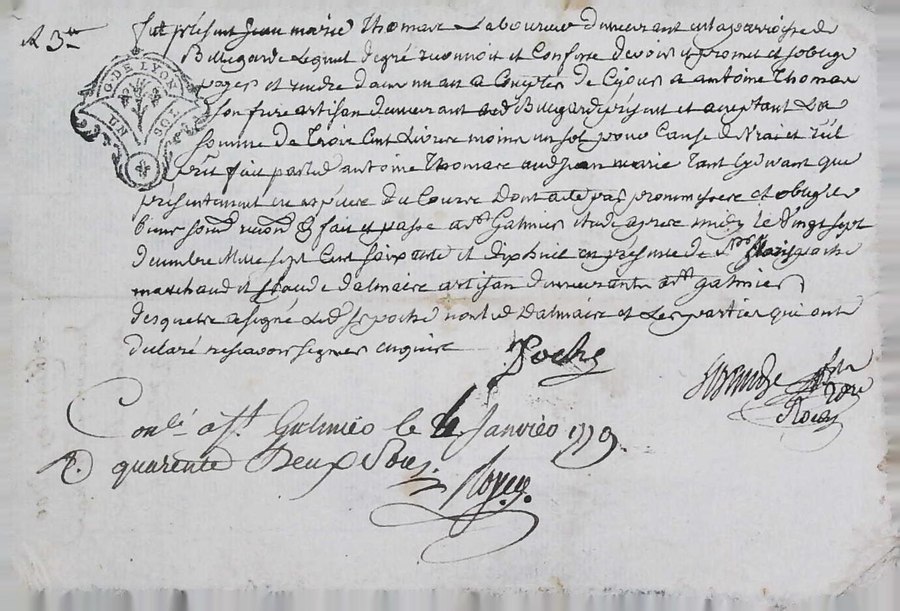 R 3
fut présent Jean marie Thomas Laboureur demeurant en la parroisse de
Bellegarde Lequel de gré reconnoit et Confesse devoir et promet et s'oblige
payer et rendre dans un an a Compter de Cejour a antoine Thomas
son frere artisan demeurant aud Bellegarde present et aceptant La
somme de Trois Cent Livres moins un sol pour Cause de vrai et réel
prêt fait par led antoine Thomas aud Jean marie tant cy devant que
présentement en espèces du Cours Dont
fait et passé a st Galmier étude apres midy le Vingt sept
décembre Mille sept Cent soixante et dix huit en présence de
marchand et Claude dalmaire artisan demeurants a st galmier
Lesquels a signé Led sr poche non led Dalmaire et Les parties qui ont
declaré ne scavoir signer enquis
Poche
G. DE LYON
UN SOL
Conlé a St. Galmier le 4 Janvier 1779.
R. quarente Deux Sols